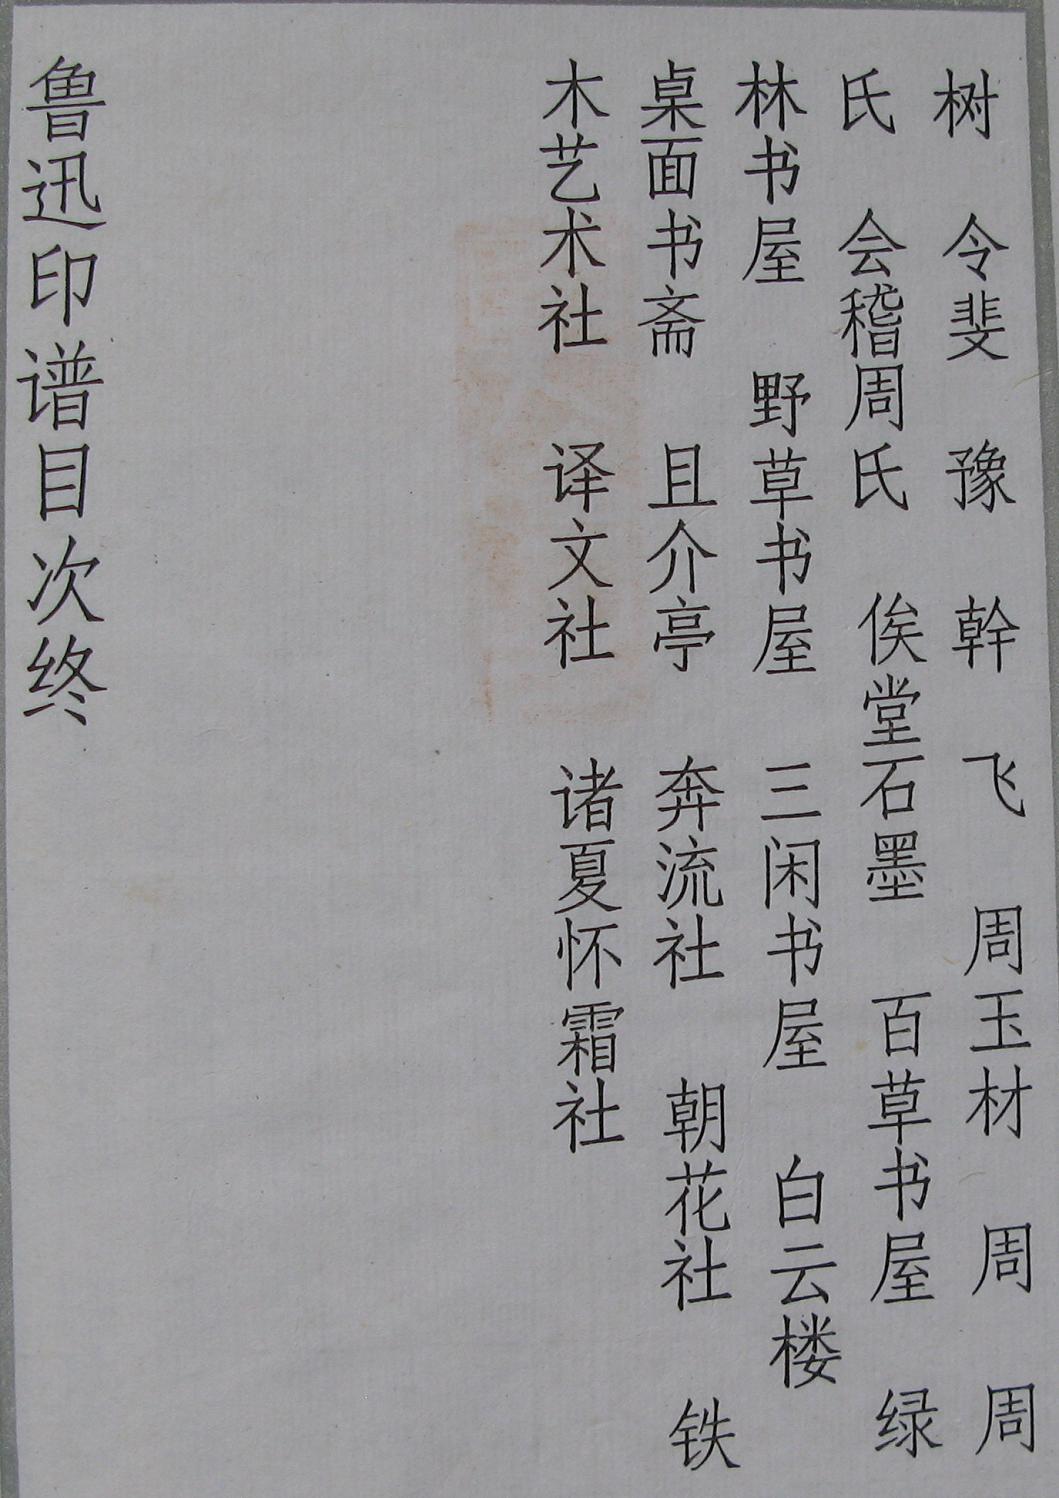 树 令斐 豫 幹 飞 周玉材 周 周
氏 会稽周氏 俟堂石墨 百草书屋 绿
林书屋 野草书屋 三闲书屋 白云楼
桌面书斋 且介亭 奔流社 朝花社 铁
木艺术社 译文社 诸夏怀霜社
鲁迅印谱目次终